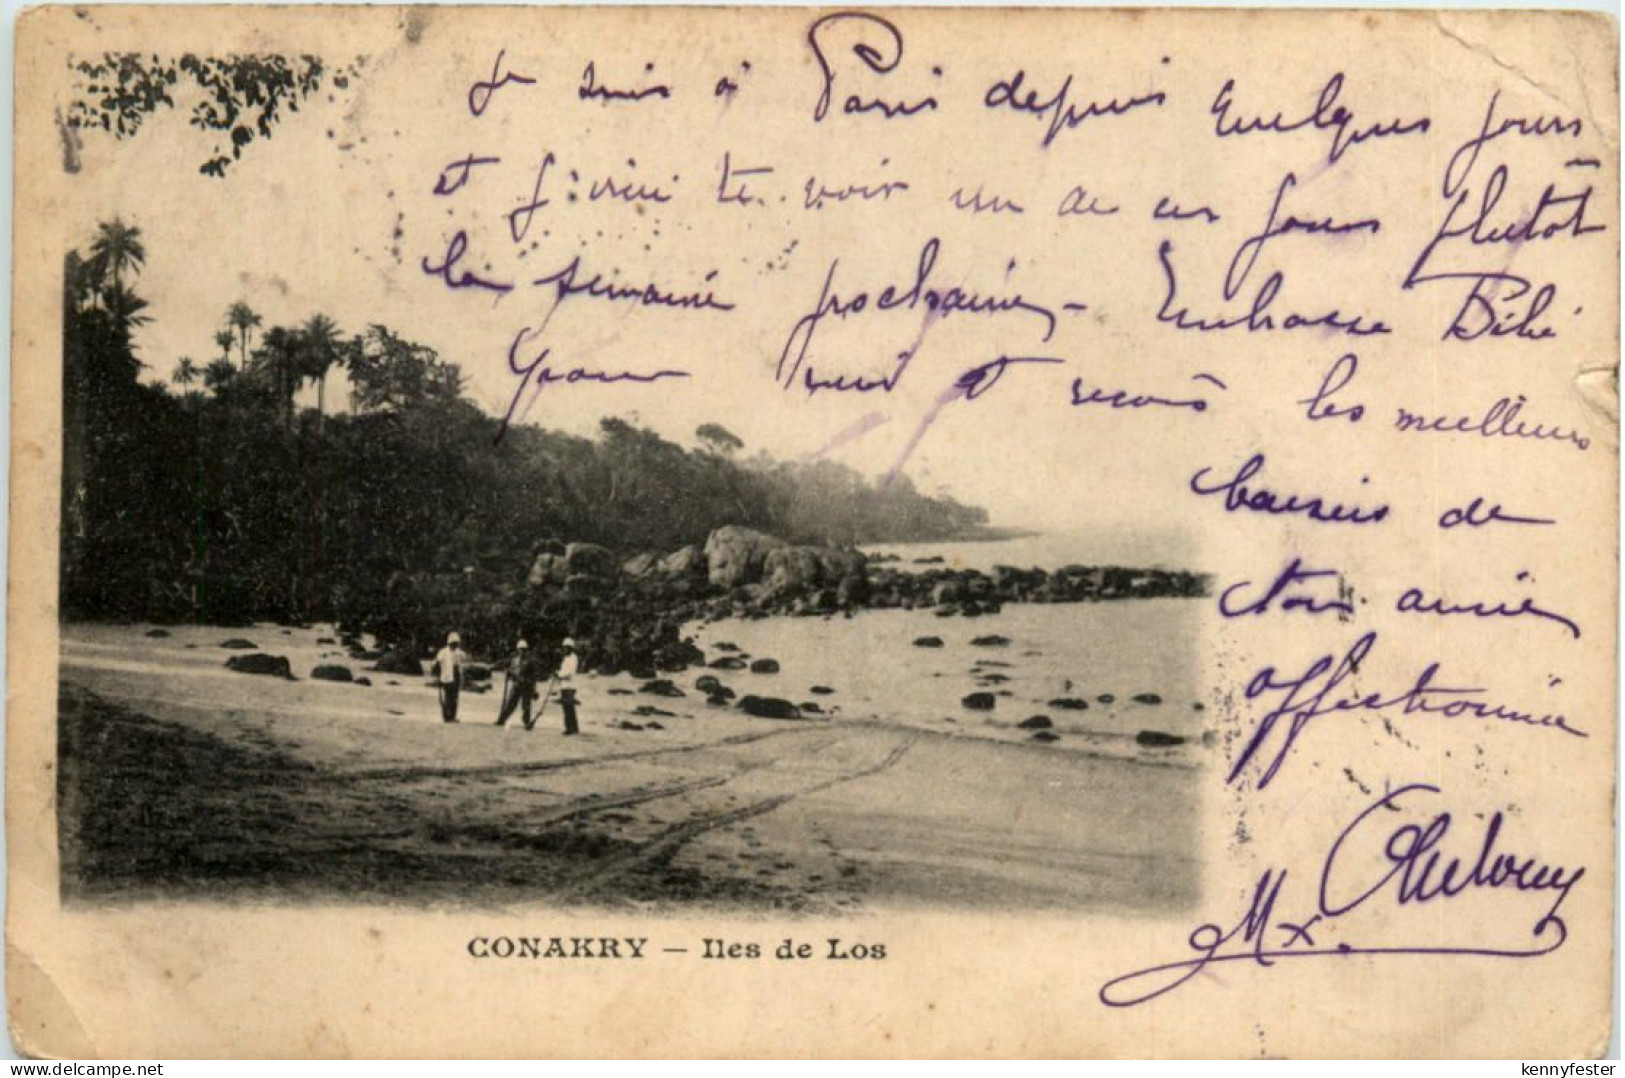 Je suis à Paris depuis quelques jours
et j'irai te voir un de ces jours plutôt
la semaine prochaine - Embrasse Bébé
pour moi et reçois les meilleurs
baisers de
ton amie
affectionnée
Mx
CONAKRY — Iles de Los
delcampe.net
kennyfester